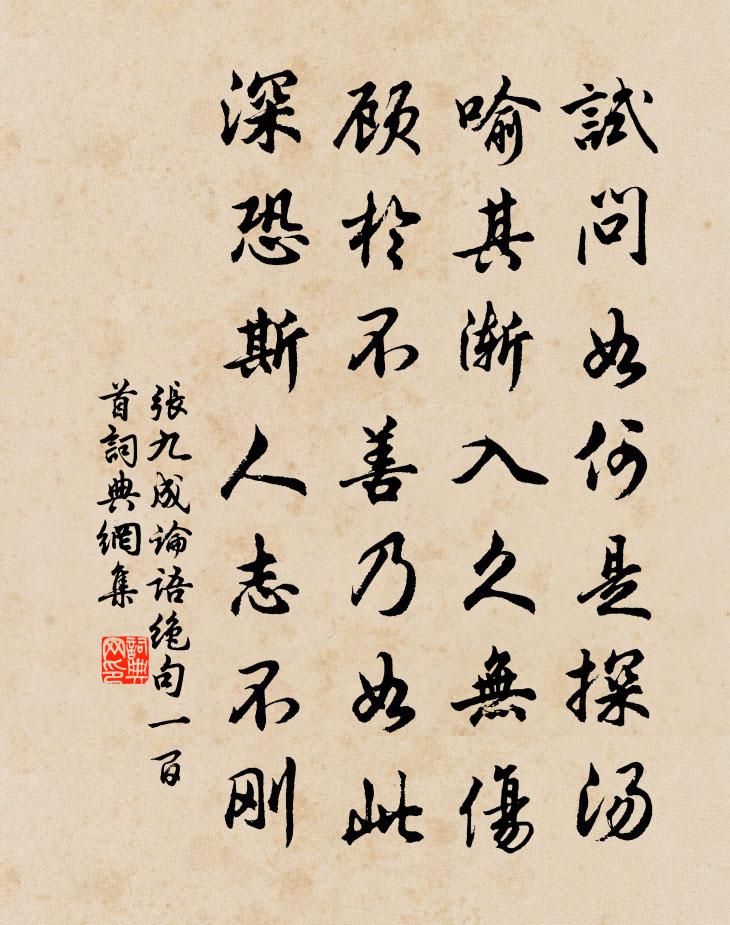 試問如何是探湯
喻其漸入久無傷
顧於不善乃如此
深恐斯人志不刚
張九成論語绝句一百
首詞典網集
詞典網印